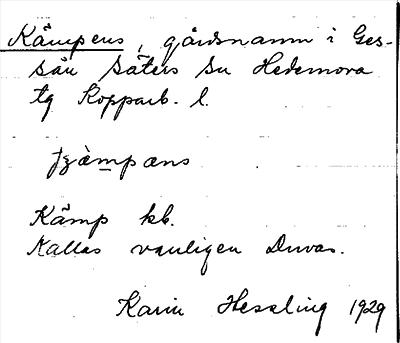 Kämpens, gårdsnamn i Ges-
sån Säters sn Hedemora
tg Kopparb. l.
Kämp kb.
Kallas vanligen Duvas.
Karin Hessling 1929